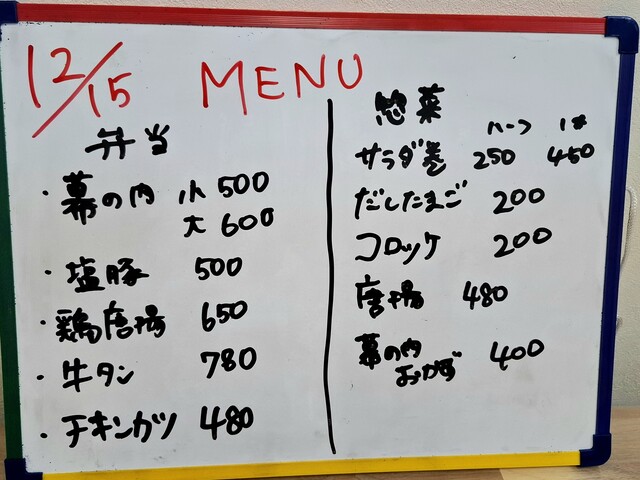 12/15 MENU
弁当
・幕の内 小 500
大 600
・塩豚 500
・鶏唐揚 650
・牛タン 780
・チキンカツ 480
惣菜
ハーフ 1本
サラダ巻 250 450
だしたまご 200
コロッケ 200
唐揚 480
幕の内 400
おかず